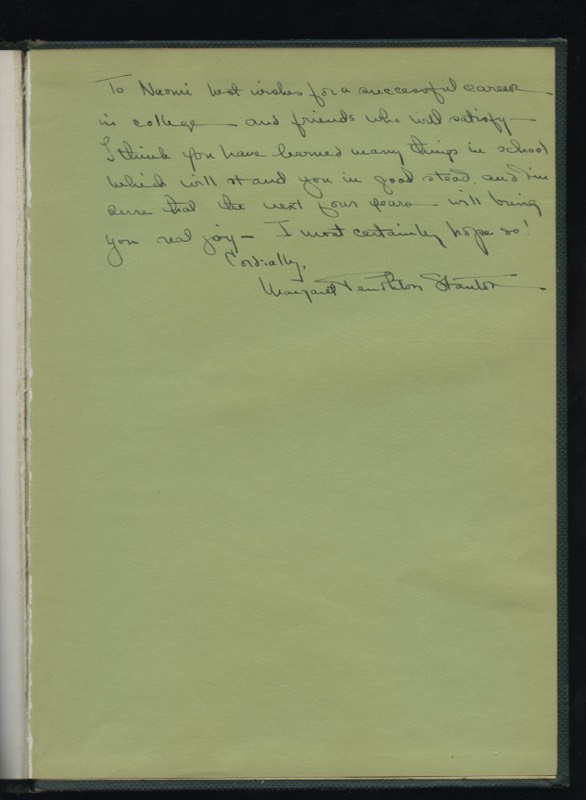 To Naomi best wishes for a successful career
in college — and friends who will satisfy —
I think you have learned many things in school
which will stand you in good stead, and I'm
sure that the next four years — will bring
you real joy — I most certainly hope so!
Cordially,
Margaret Stanton